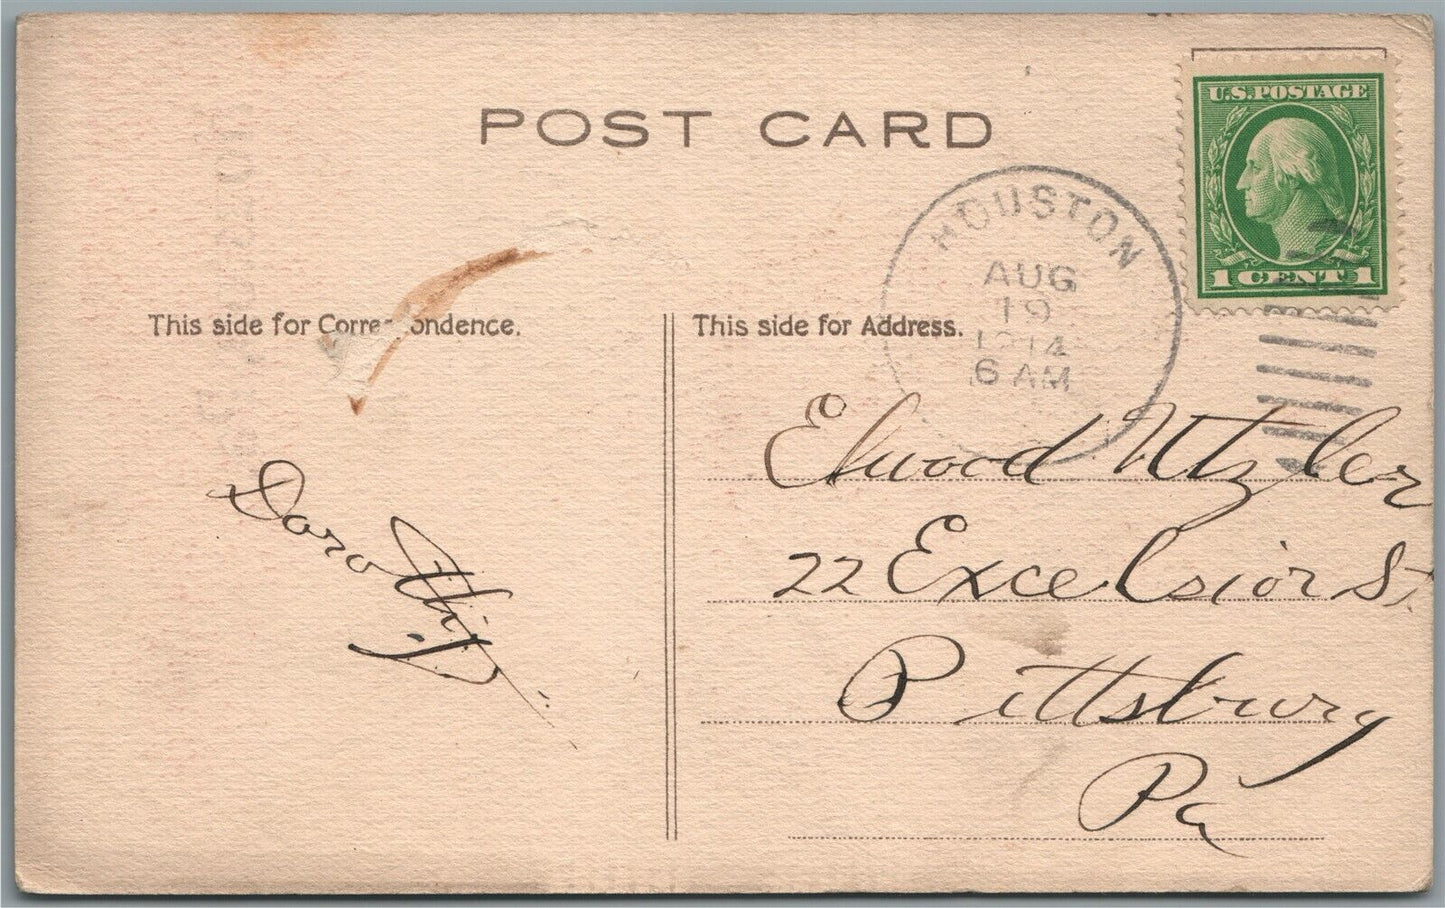 POST CARD
U.S.POSTAGE
1 CENT 1
HOUSTON
AUG
19
1914
6 AM
This side for Correspondence.
This side for Address.
Dorothy
Elwood Utzler
22 Excelsior St.
Pittsburg
Pa